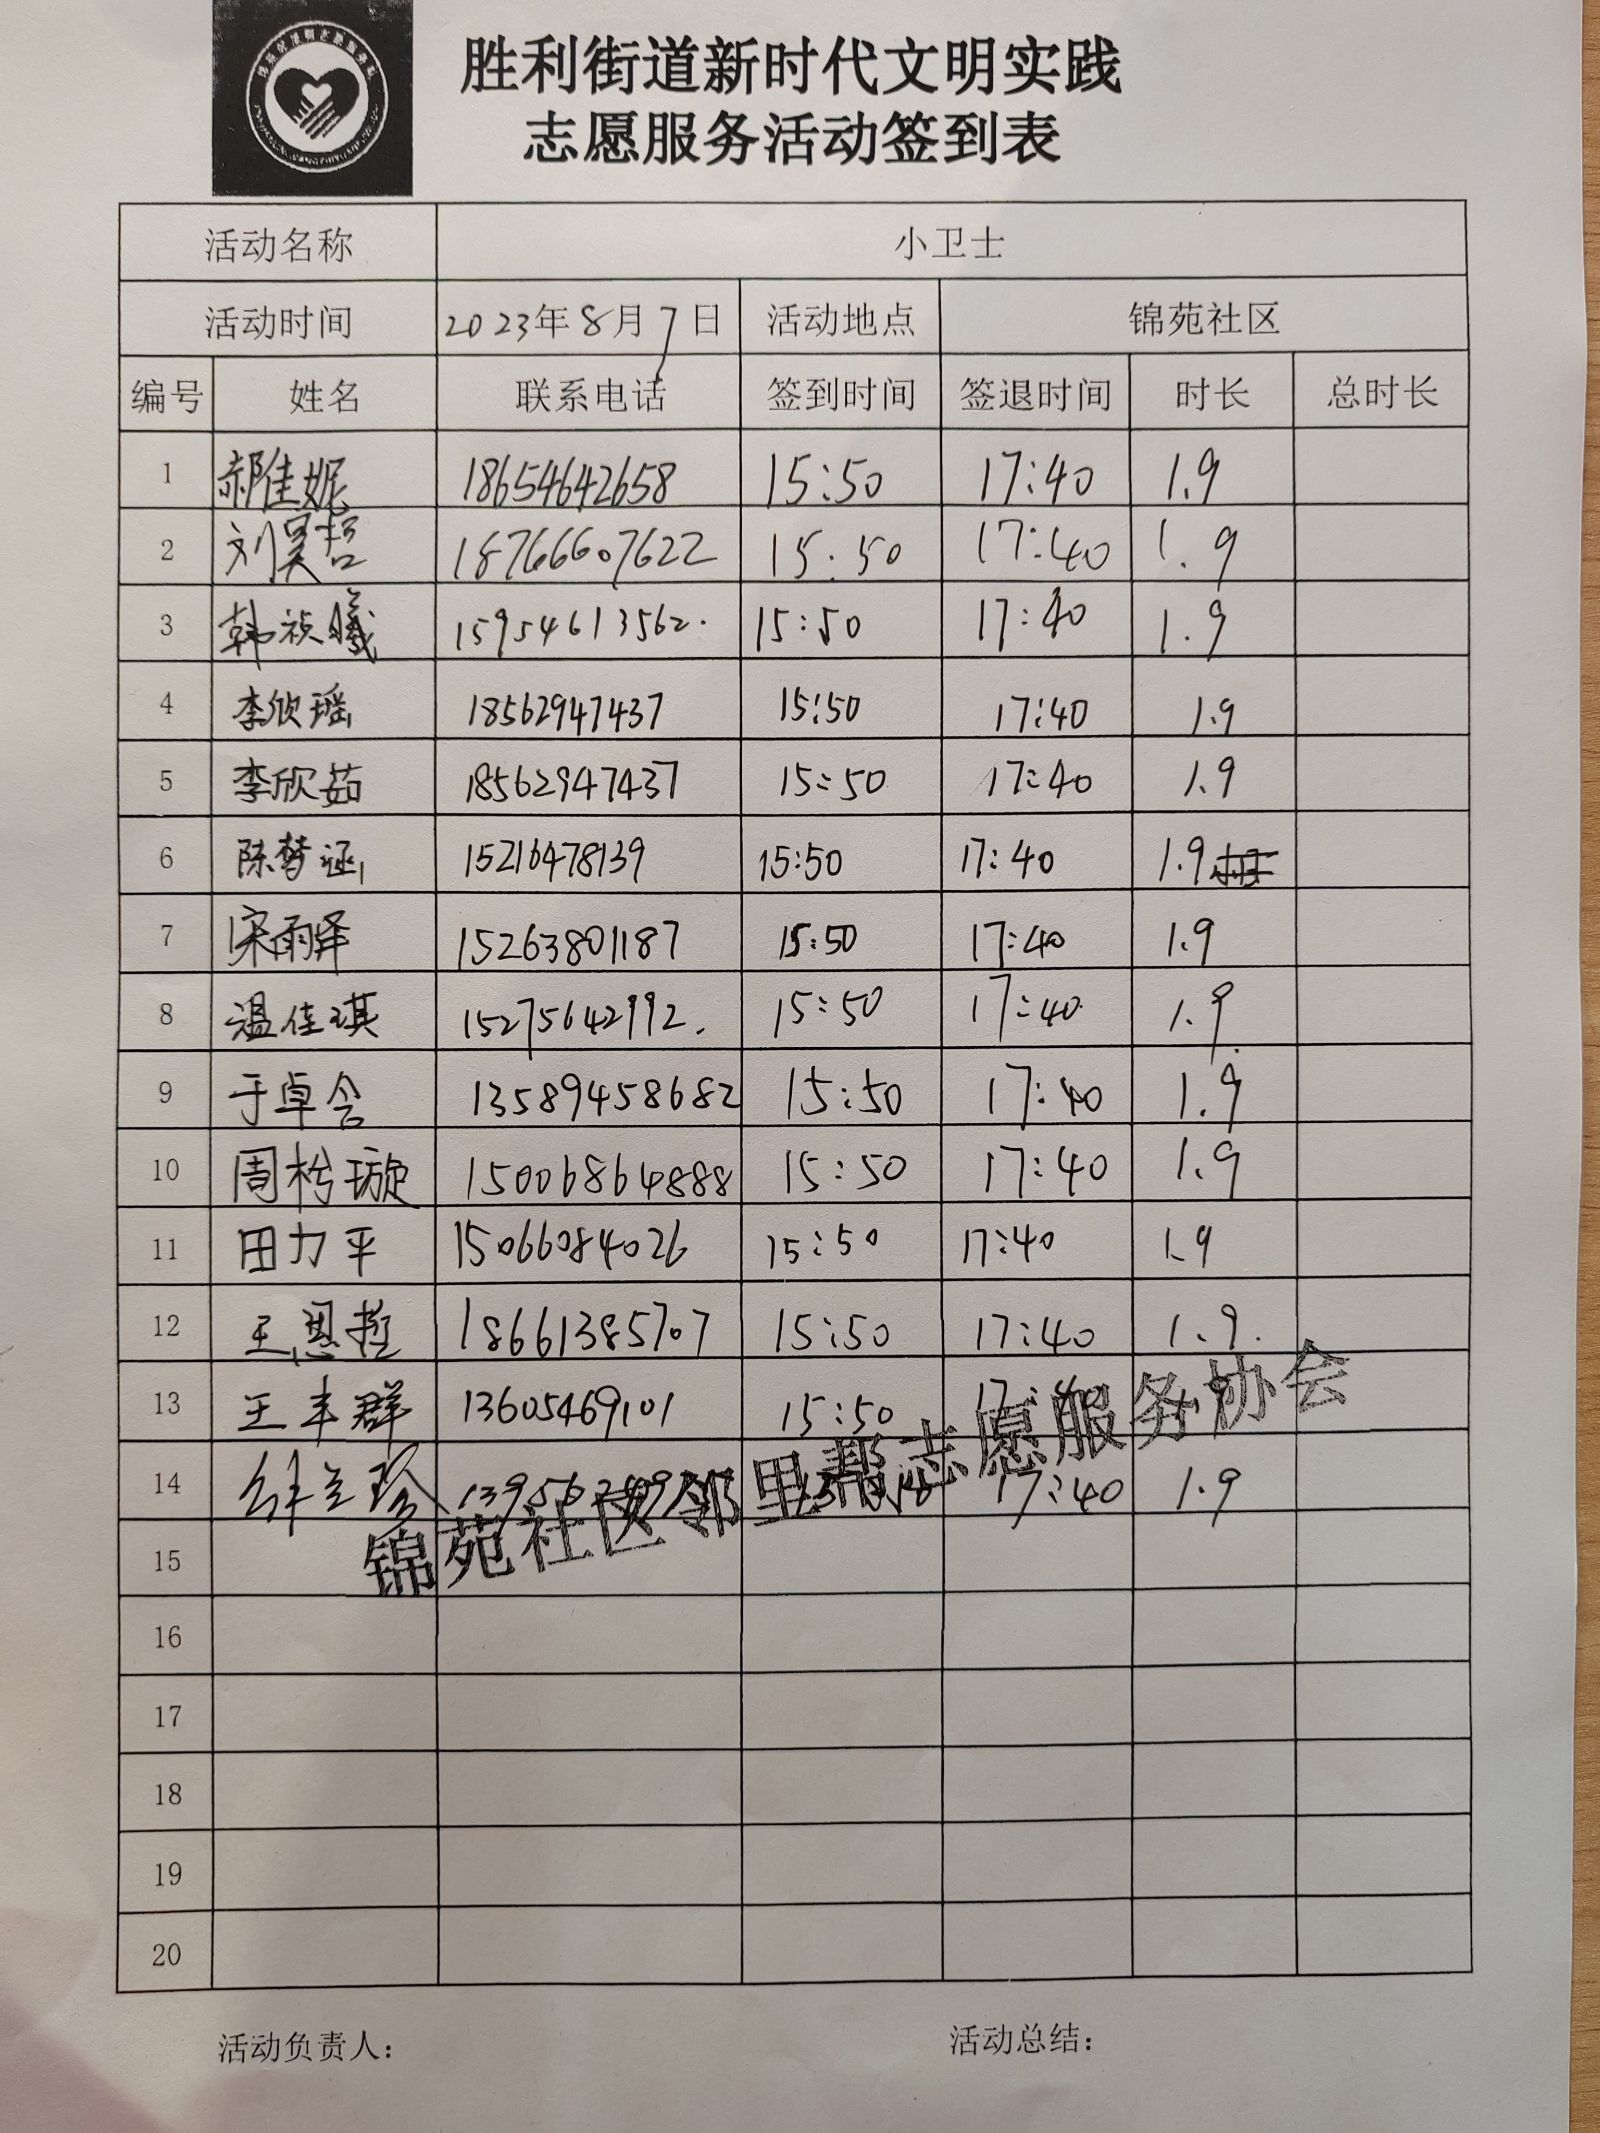 胜利街道新时代文明实践
志愿服务活动签到表
活动名称 小卫士
活动时间 2023年8月7日 活动地点 锦苑社区
编号 姓名 联系电话 签到时间 签退时间 时长 总时长
1 郝佳妮 18654642658 15:50 17:40 1.9
2 刘昊哲 18766607622 15:50 17:40 1.9
3 韩祯曦 15954613562. 15:50 17:40 1.9
4 李欣瑶 18562947437 15:50 17:40 1.9
5 李欣茹 18562947437 15:50 17:40 1.9
6 陈梦涵 15216478139 15:50 17:40 1.9
7 宋雨泽 15263801187 15:50 17:40 1.9
8 温佳琪 15275642992. 15:50 17:40 1.9
9 于卓含 13589458682 15:50 17:40 1.9
10 周杉璇 15006864888 15:50 17:40 1.9
11 田力平 15066084026 15:50 17:40 1.9
12 王思哲 18661385707 15:50 17:40 1.9.
13 王丰群 13605469101 15:50
14 17:40 1.9
锦苑社区邻里帮志愿服务协会
15
16
17
18
19
20
活动负责人： 活动总结：